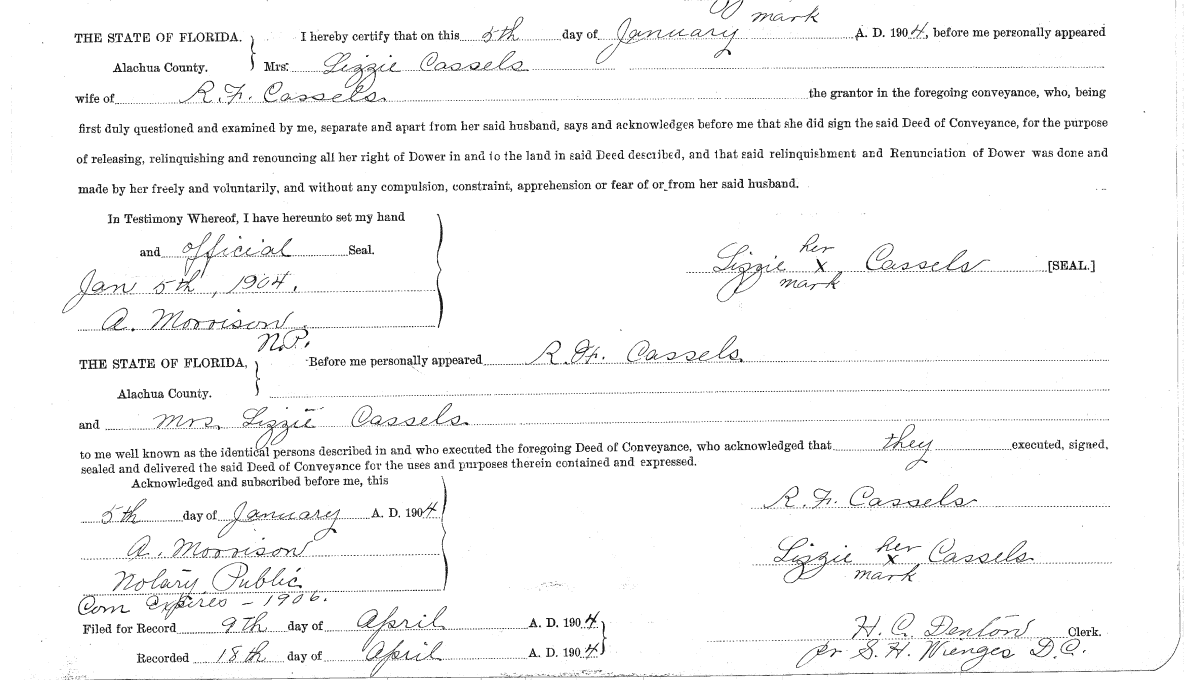 mark
THE STATE OF FLORIDA. I hereby certify that on this 5th day of January A. D. 1904, before me personally appeared
Alachua County. Mrs. Lizzie Cassels
wife of R. F. Cassels. the grantor in the foregoing conveyance, who, being
first duly questioned and examined by me, separate and apart from her said husband, says and acknowledges before me that she did sign the said Deed of Conveyance, for the purpose
of releasing, relinquishing and renouncing all her right of Dower in and to the land in said Deed described, and that said relinquishment and Renunciation of Dower was done and
made by her freely and voluntarily, and without any compulsion, constraint, apprehension or fear of or from her said husband.
In Testimony Whereof, I have hereunto set my hand
and official Seal.
her
Lizzie x Cassels [SEAL.]
mark
Jan 5th, 1904.
A. Morrison.
N.P.
THE STATE OF FLORIDA, Before me personally appeared R. F. Cassels.
Alachua County.
and Mrs. Lizzie Cassels.
to me well known as the identical persons described in and who executed the foregoing Deed of Conveyance, who acknowledged that they executed, signed,
sealed and delivered the said Deed of Conveyance for the uses and purposes therein contained and expressed.
Acknowledged and subscribed before me, this
5th day of January A. D. 1904
R. F. Cassels
A. Morrison
her
Lizzie x Cassels.
mark
Notary Public
Com Expires - 1906.
Filed for Record 9th day of April A. D. 1904
H. C. Denton Clerk.
Recorded 18th day of April A. D. 1904
pr S. H. Wienges D.C.